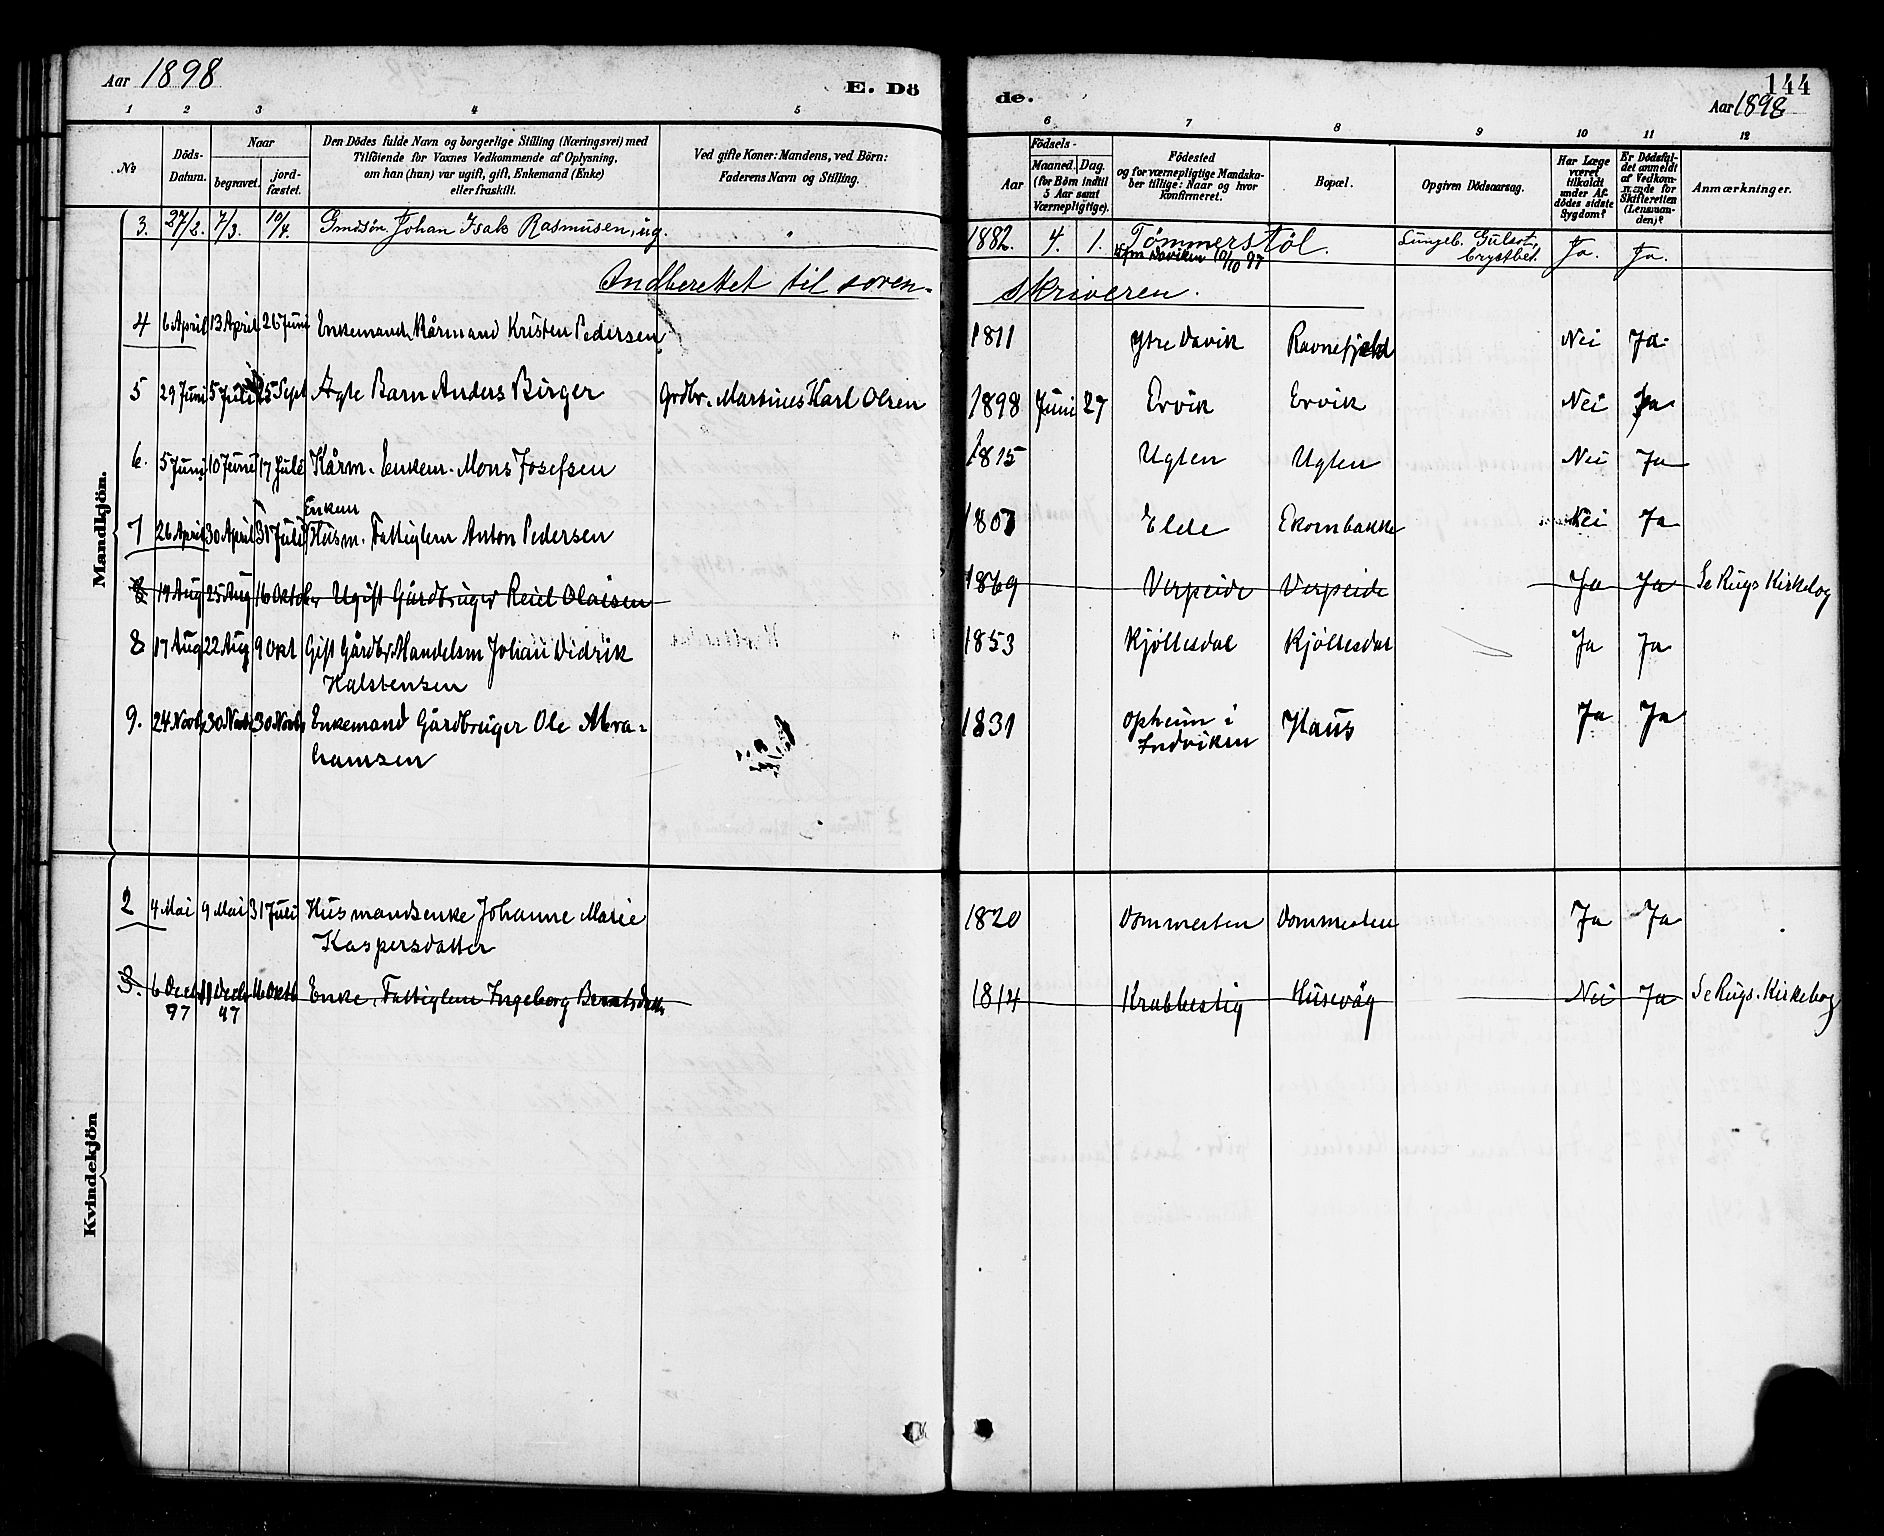 Aar 1898
E. Dö
de.
144
Aar 1898
1 2 3 4 5 6 7 8 9 10 11 12
No
Döds-
Datum.
Naar
begravet.
jord-
fæstet.
Den Dödes fulde Navn og borgerlige Stilling (Næringsvei) med
Tilföiende for Voxnes Vedkommende af Oplysning,
om han (hun) var ugift, gift, Enkemand (Enke)
eller fraskilt.
Ved gifte Koner: Mandens, ved Börn:
Faderens Navn og Stilling.
Födsels-
Aar
Maaned.
Dag.
(for Börn indtil
5 Aar samt
Værnepligtige).
Födested
og for værnepligtige Mandska-
ber tillige: Naar og hvor
konfirmeret.
Bopæl.
Opgiven Dödsaarsag.
Har Læge
været
tilkaldt
under Af-
dödes sidste
Sygdom?
Er Dödsfal-
det anmeldt
af Vedkom-
mende for
Skifteretten
(Lensman-
den)?
Anmærkninger.
Mandkjön.
3. 27/2. 7/3. 10/4. Gmdsøn Johan Isak Rasmusen, ug. 1882. 4. 1. Tømmerstøl. Lungeb. Gulsot, Ja. Ja.
Daviken 10/10 97 brystbet.
Indberettet til soren-
skriveren.
4 6 April 13 April 26 Juni Enkemand Kårmand Kristen Pedersen 1811 Ytre Davik Ravnefjeld Nei Ja
5 29 Juni 5 Juli 25 Sept Ægte Barn Anders Birger Grdbr. Martinus Karl Olsen 1898 Juni 27 Ervik Ervik Nei Ja
6. 5 Juni 10 Juni 17 Juli Kårm. Enkem. Mons Josefsen 1815 Ugten Ugten Nei Ja
Enkem
7 26 April 30 April 31 Juli Husm. Fattiglem Anton Pedersen 1807 Elde Ekornbakke Nei Ja
8 19 Aug 25 Aug 16 Oktober Ugift Gårdbruger Reiel Olaisen 1869 Verpeide Verpeide Ja Ja Se Rugs Kirkebog
8 17 Aug 22 Aug 9 Okt Gift Gårdbr. Handelsm Johan Didrik 1853 Kjöllesdal Kjöllesdal Ja Ja
Halstensen
9. 24 Novb 30 Novb 30 Novb Enkemand Gårdbruger Ole Abra- 1831 Opheim i Haus Ja Ja
hamsen Indviken
Kvindekjön
2 4 Mai 9 Mai 31 Juli Husmandsenke Johanne Marie 1820 Dommesten Dommesten Ja Ja
Kaspersdatter
3. 6 Decb 11 Decb 16 Oktb Enke, Fattiglem Ingeborg Berntsdatt 1814 Krabbestig Husevåg Nei Ja Se Rugs. Kirkebog
97 97